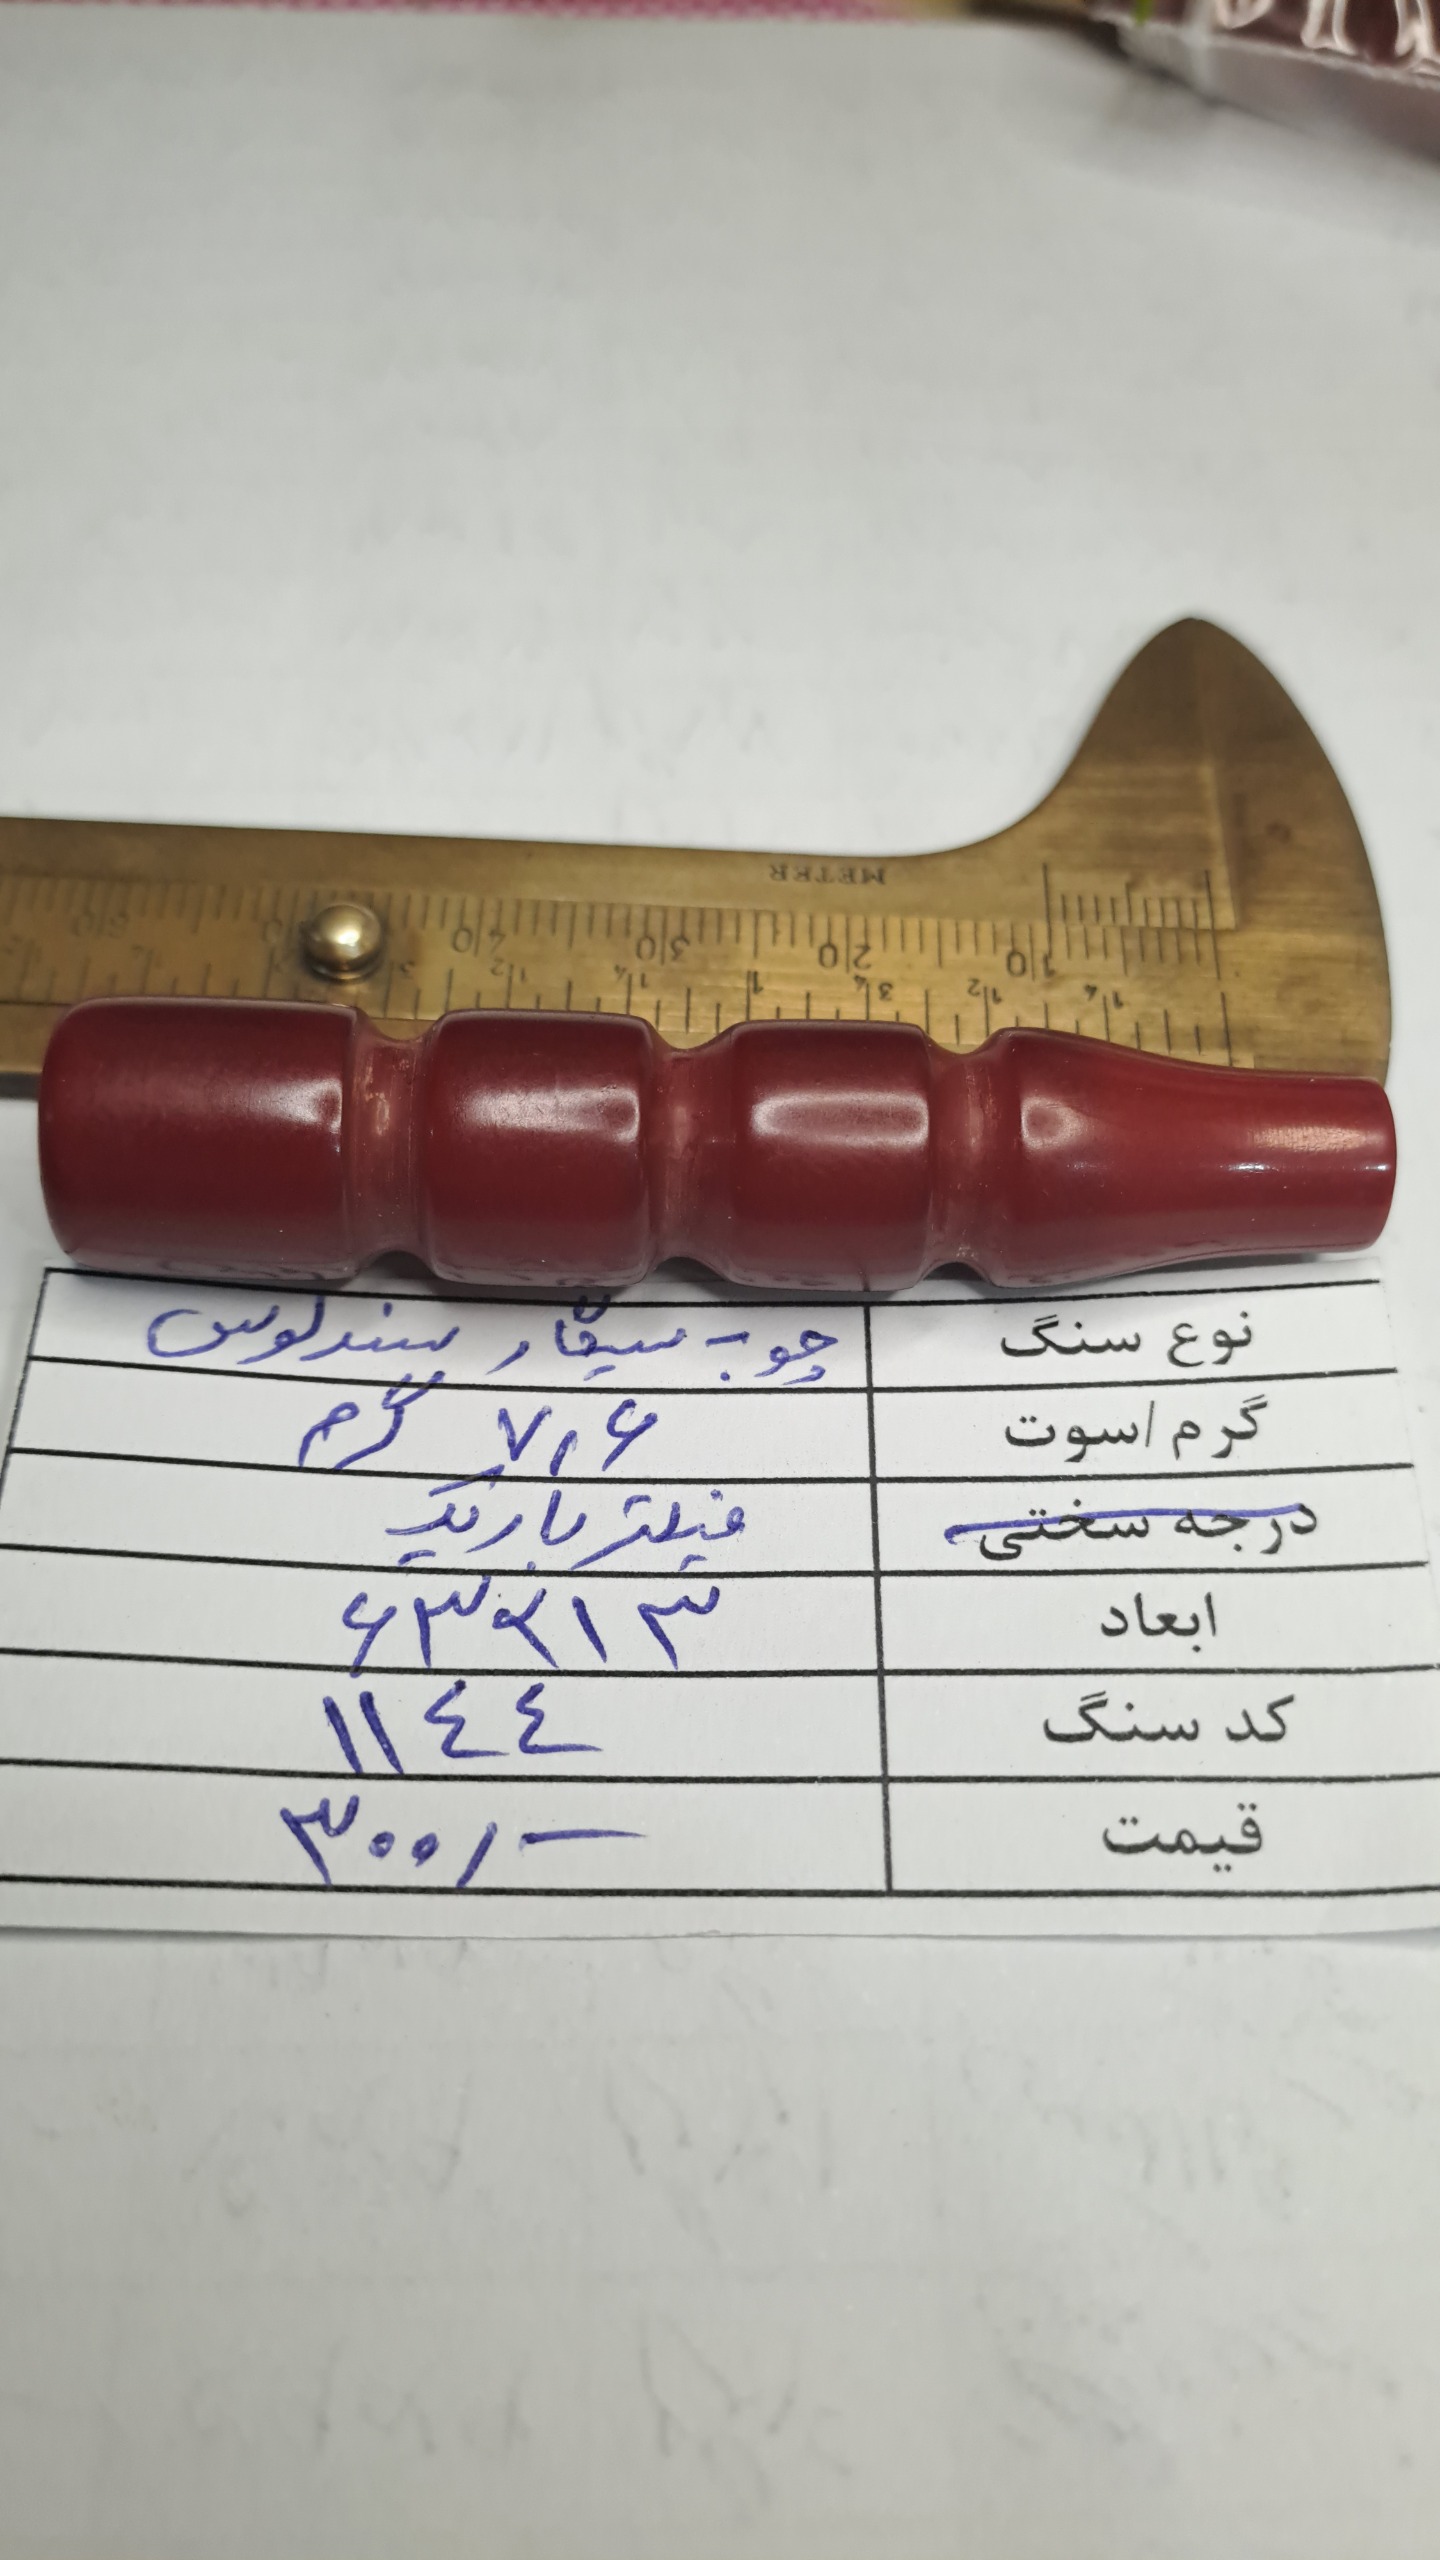 METER
10 20 30 40
1/4 1/2 3/4 1 1/4 1/2
نوع سنگ چوب سیگار سندلوس
گرم / سوت ۷٫۶ گرم
درجه سختی فیلتر باریک
ابعاد ۶۳×۱۳
کد سنگ ۱۱٤٤
قیمت ۳۰۰٫-